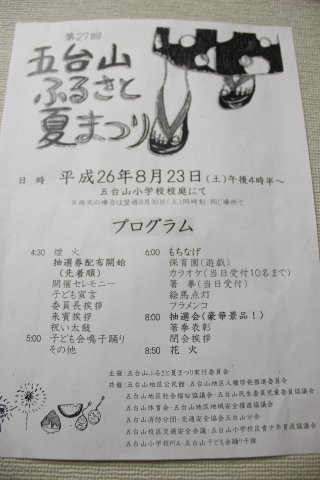 第27回
五台山
ふるさと
夏まつり
日 時 平成26年8月23日(土)午後4時半～
五台山小学校校庭にて
※雨天の場合は翌週8月30日(土)同時刻・同じ場所で
プログラム
4:30 煙 火
抽選券配布開始
(先着順)
開催セレモニー
子ども宣言
委員長挨拶
来賓挨拶
祝い太鼓
5:00 子ども会鳴子踊り
その他
6:00 もちなげ
保育園(遊戯)
カラオケ(当日受付10名まで)
箸 拳(当日受付)
絵馬点灯
フラメンコ
8:00 抽選会(豪華景品!)
箸拳表彰
閉会挨拶
8:50 花 火
主催：五台山ふるさと夏まつり実行委員会
共催：五台山地区公民館・五台山地区人権啓発推進委員会
五台山地区社会福祉協議会・五台山民生委員児童委員協議会
五台山体育会・五台山地区地域安全推進協議会
五台山消防分団・交通安全協会五台山分会
五台山校区交通安全会議・五台山小学校区青少年育成協議会
五台山小学校PTA・五台山子ども会踊り子隊